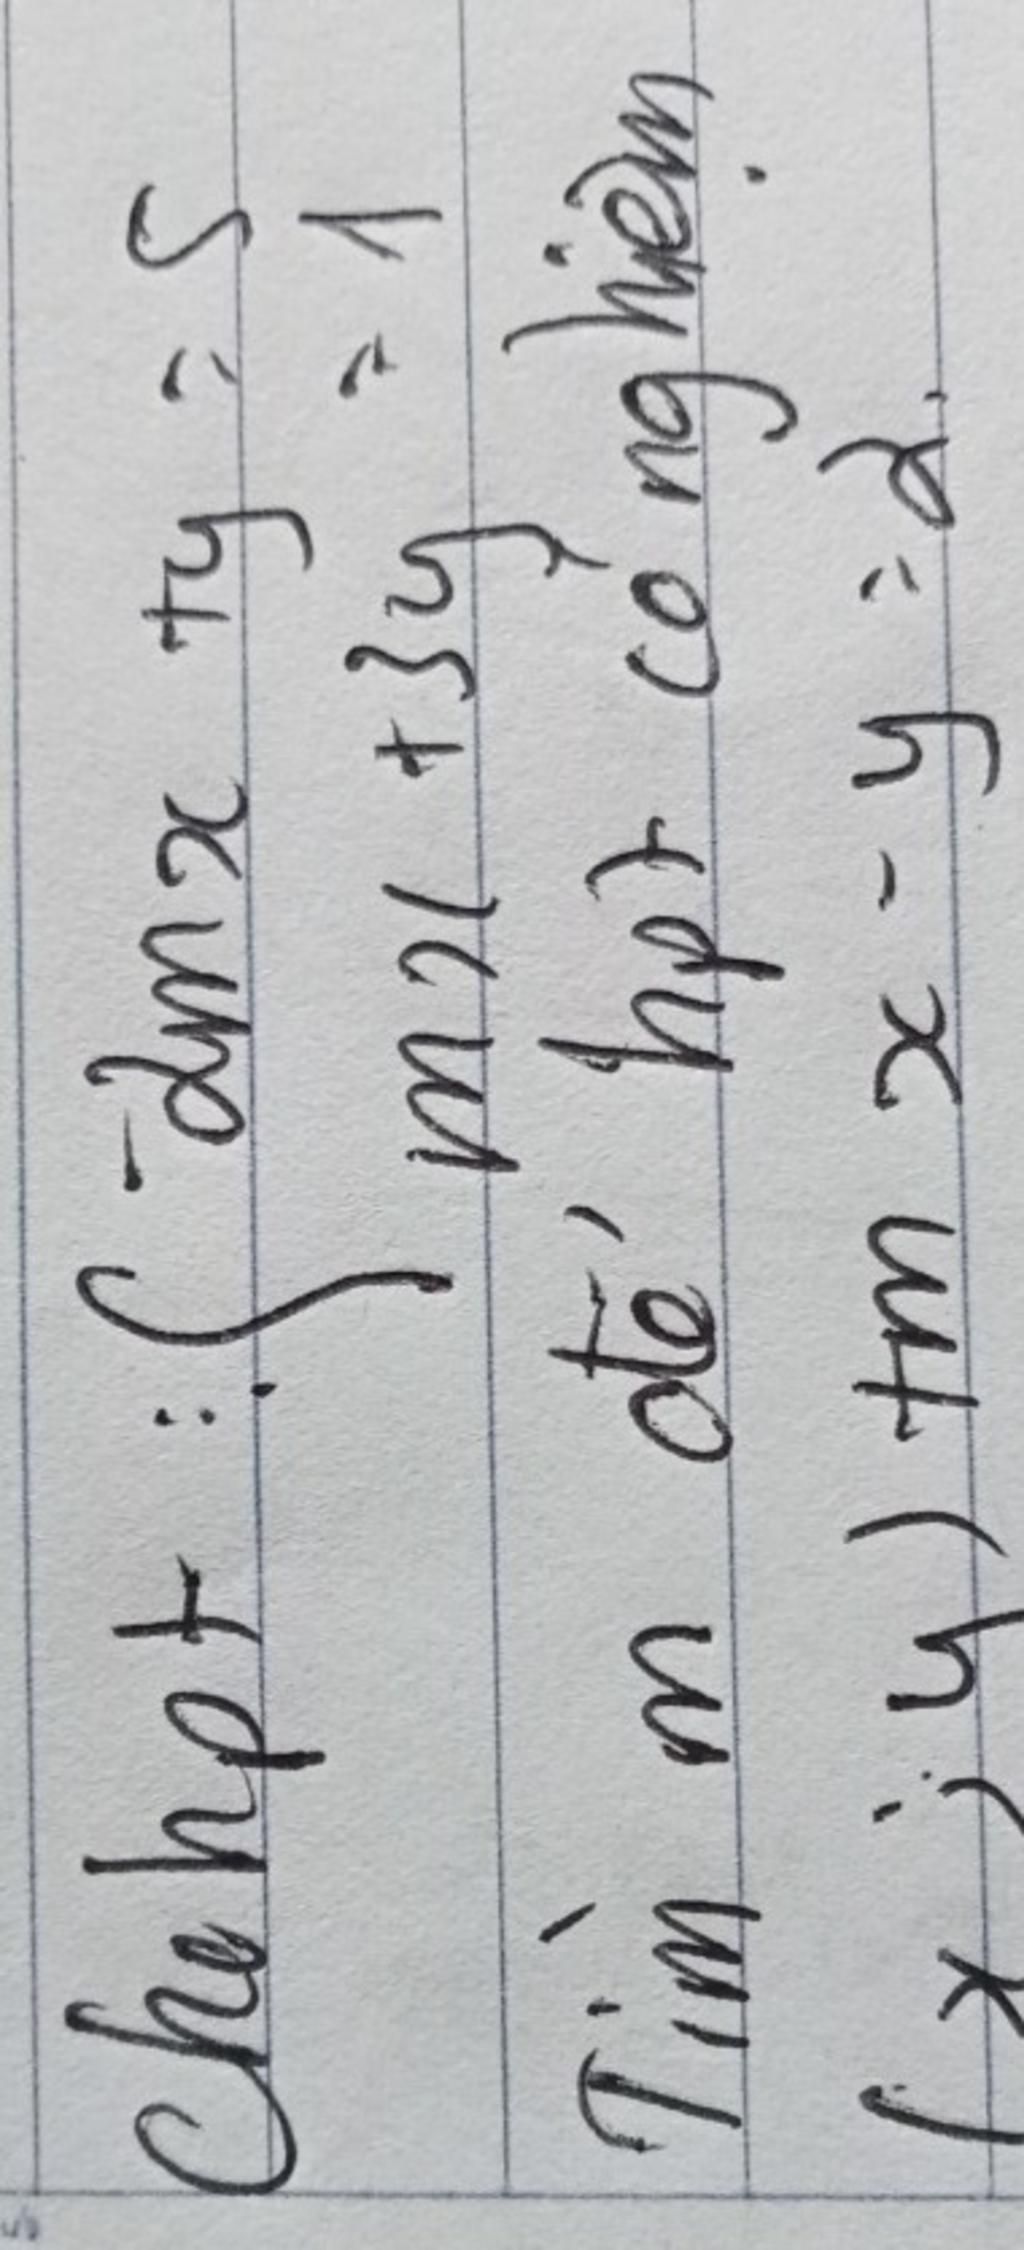 Cho hpt : { -2mx + y = 5
mx + 3y = 1
Tìm m để hpt có nghiệm
(x ; y) tm x - y = 2.